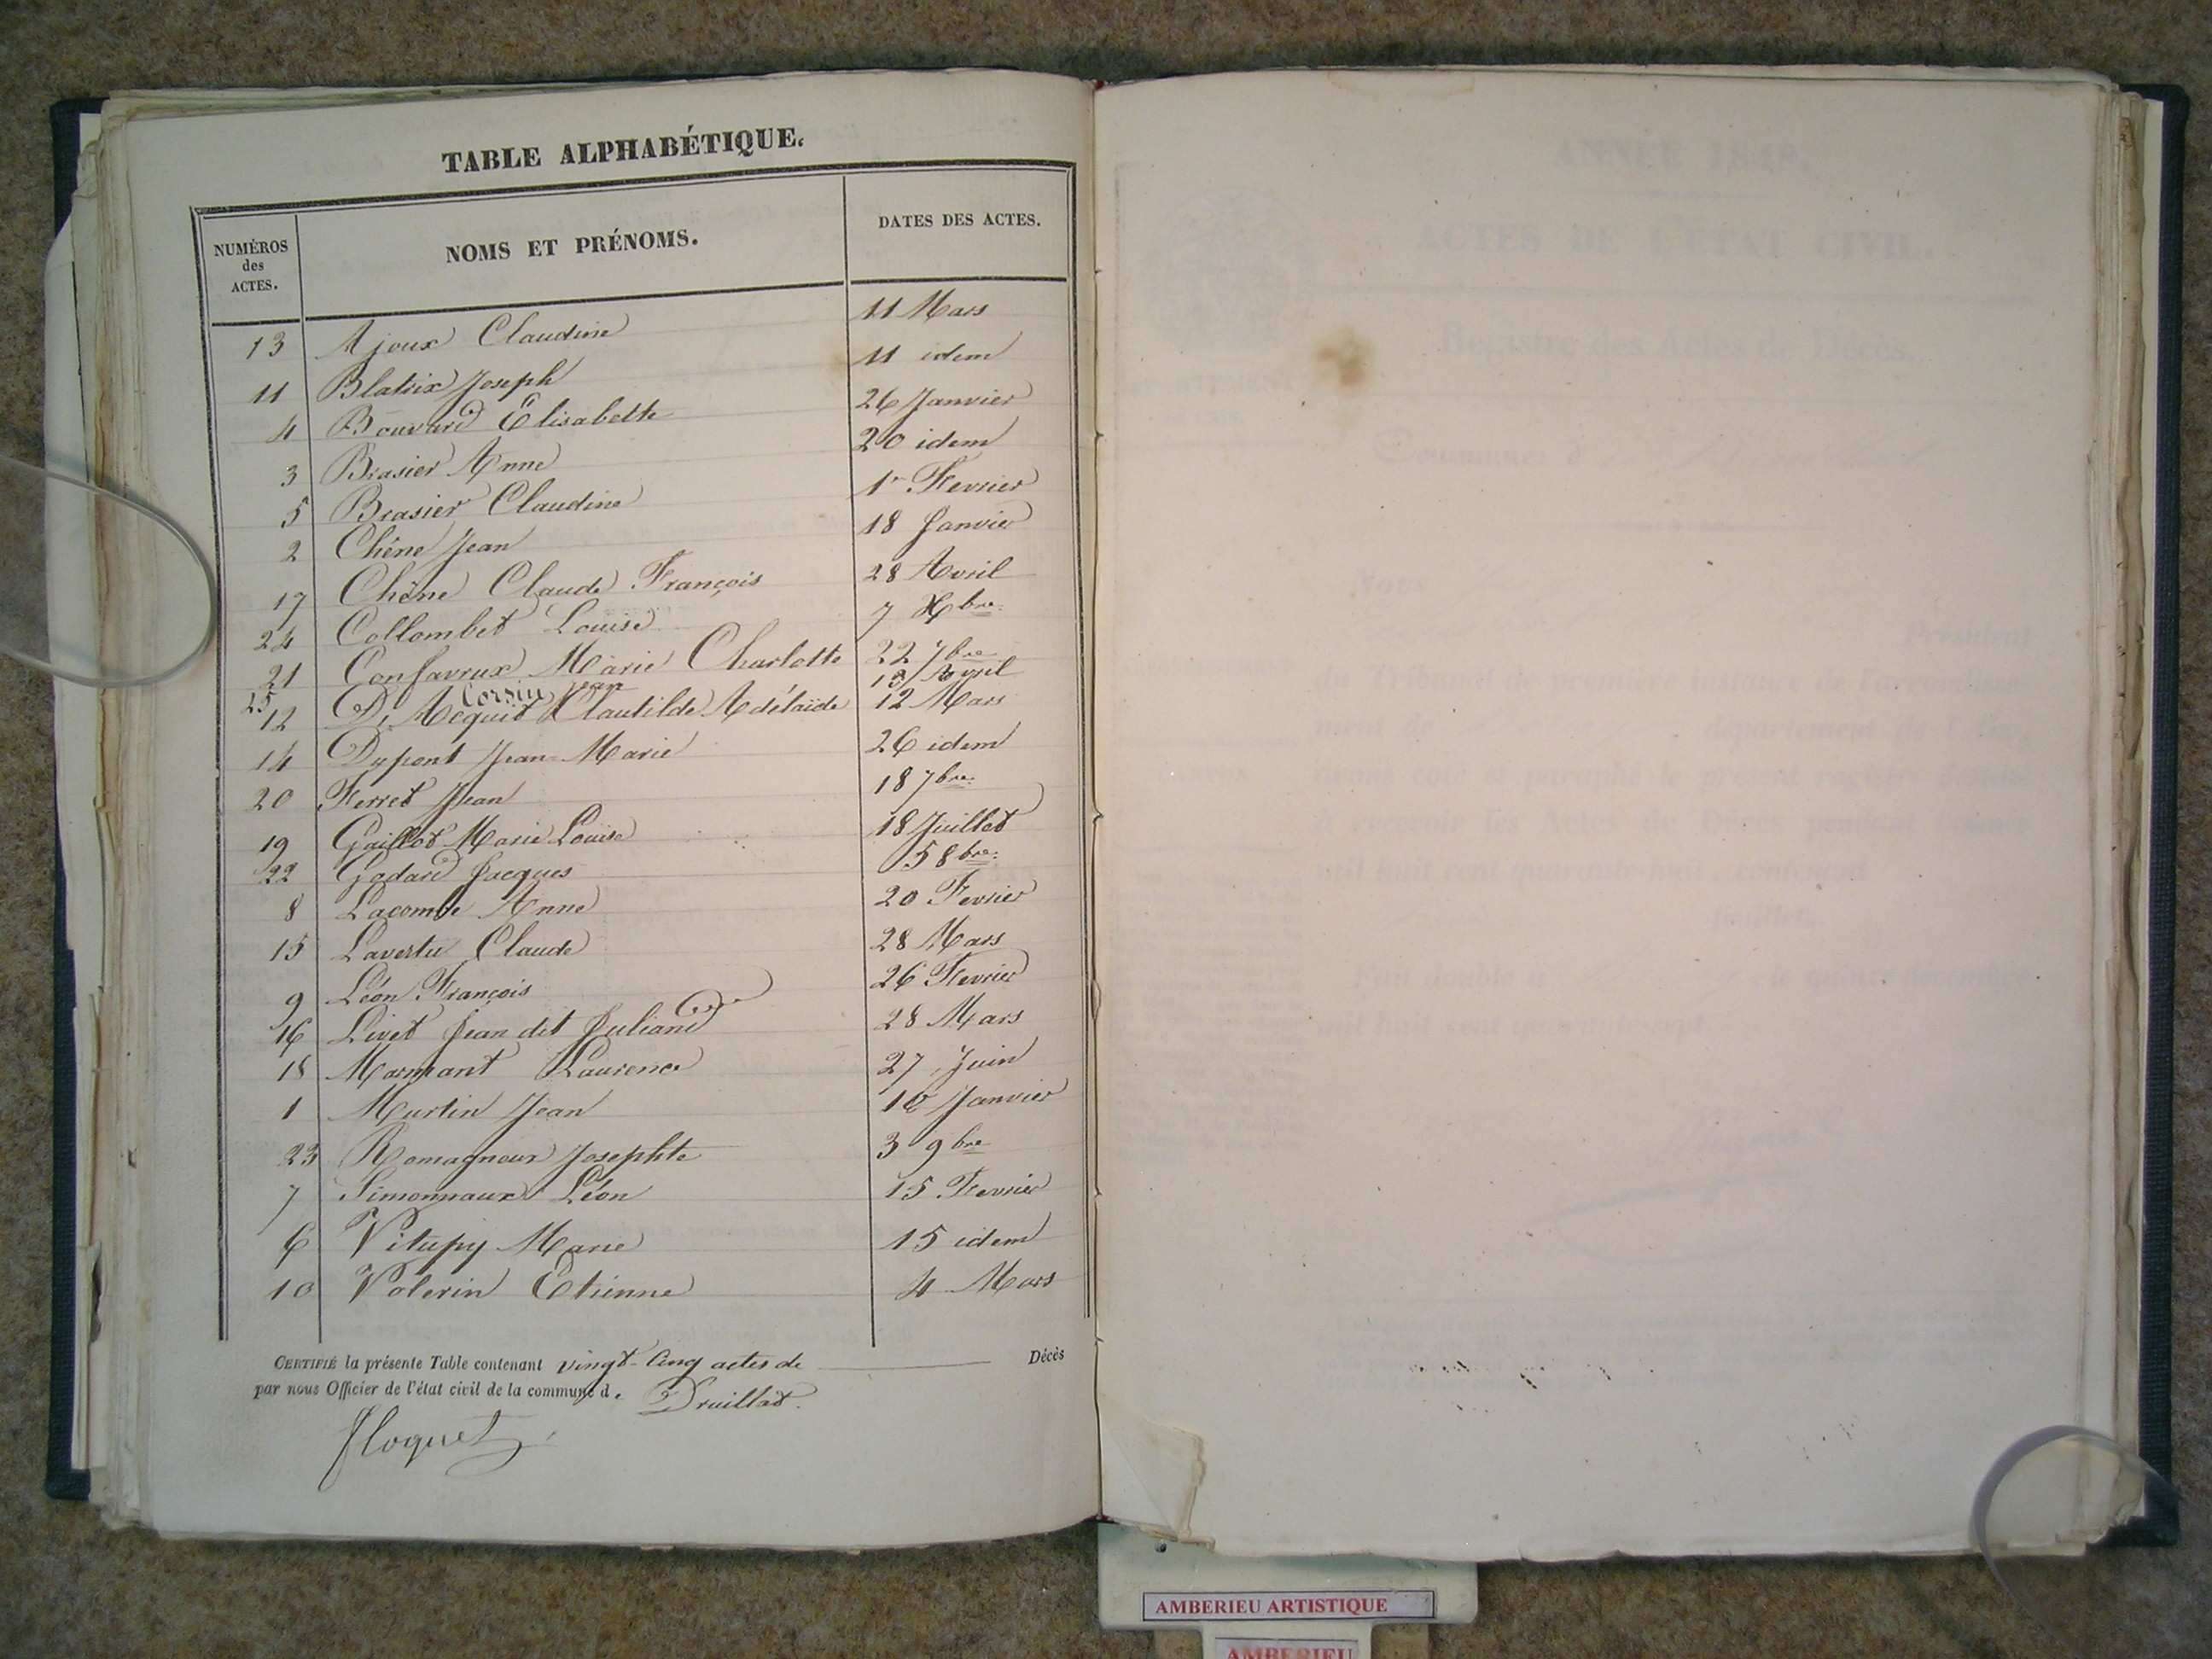 TABLE ALPHABÉTIQUE.
NUMÉROS des ACTES.
NOMS ET PRÉNOMS.
DATES DES ACTES.
13 Ajoux Claudine 11 Mars
11 Blatrix Joseph 11 idem
4 Bouvard Elisabeth 26 Janvier
3 Brasier Anne 20 idem
5 Brasier Claudine 1r Fevrier
2 Chêne Jean 18 Janvier
17 Chêne Claude François 28 Avril
24 Collombet Louise 7 Xbre
21 Confavrux Marie Charlotte 22 7bre
25 Corsin Jean Avril
12 D'Acquit Clautilde Adélaïde 12 Mars
14 Dupont Jean-Marie 26 idem
20 Ferret Jean 18 7bre
19 Gaillot Marie Louise 18 Juillet
22 Godard Jacques 5 8bre
8 Lacombe Anne 20 Fevrier
15 Lavertu Claude 28 Mars
9 Léon François 26 Fevrier
16 Livet Jean dit Juliand 28 Mars
18 Marmant Laurence 27 Juin
1 Martin Jean 16 Janvier
23 Romagneux Josephte 3 9bre
7 Simonnaux Léon 15 Fevrier
6 Vitupy Marie 15 idem
10 Volerin Etienne 4 Mars
CERTIFIÉ la présente Table contenant vingt-Cinq actes de Décès
par nous Officier de l'état civil de la commune d. Druillat.
Floquet
ANNÉE 184
ACTES DE L'ÉTAT CIVIL.
Registre des Actes de Décès.
Commune d
Président
du Tribunal de première instance de l'arrondisse-
ment de département de l'Ain,
AMBERIEU ARTISTIQUE
AMBERIEU